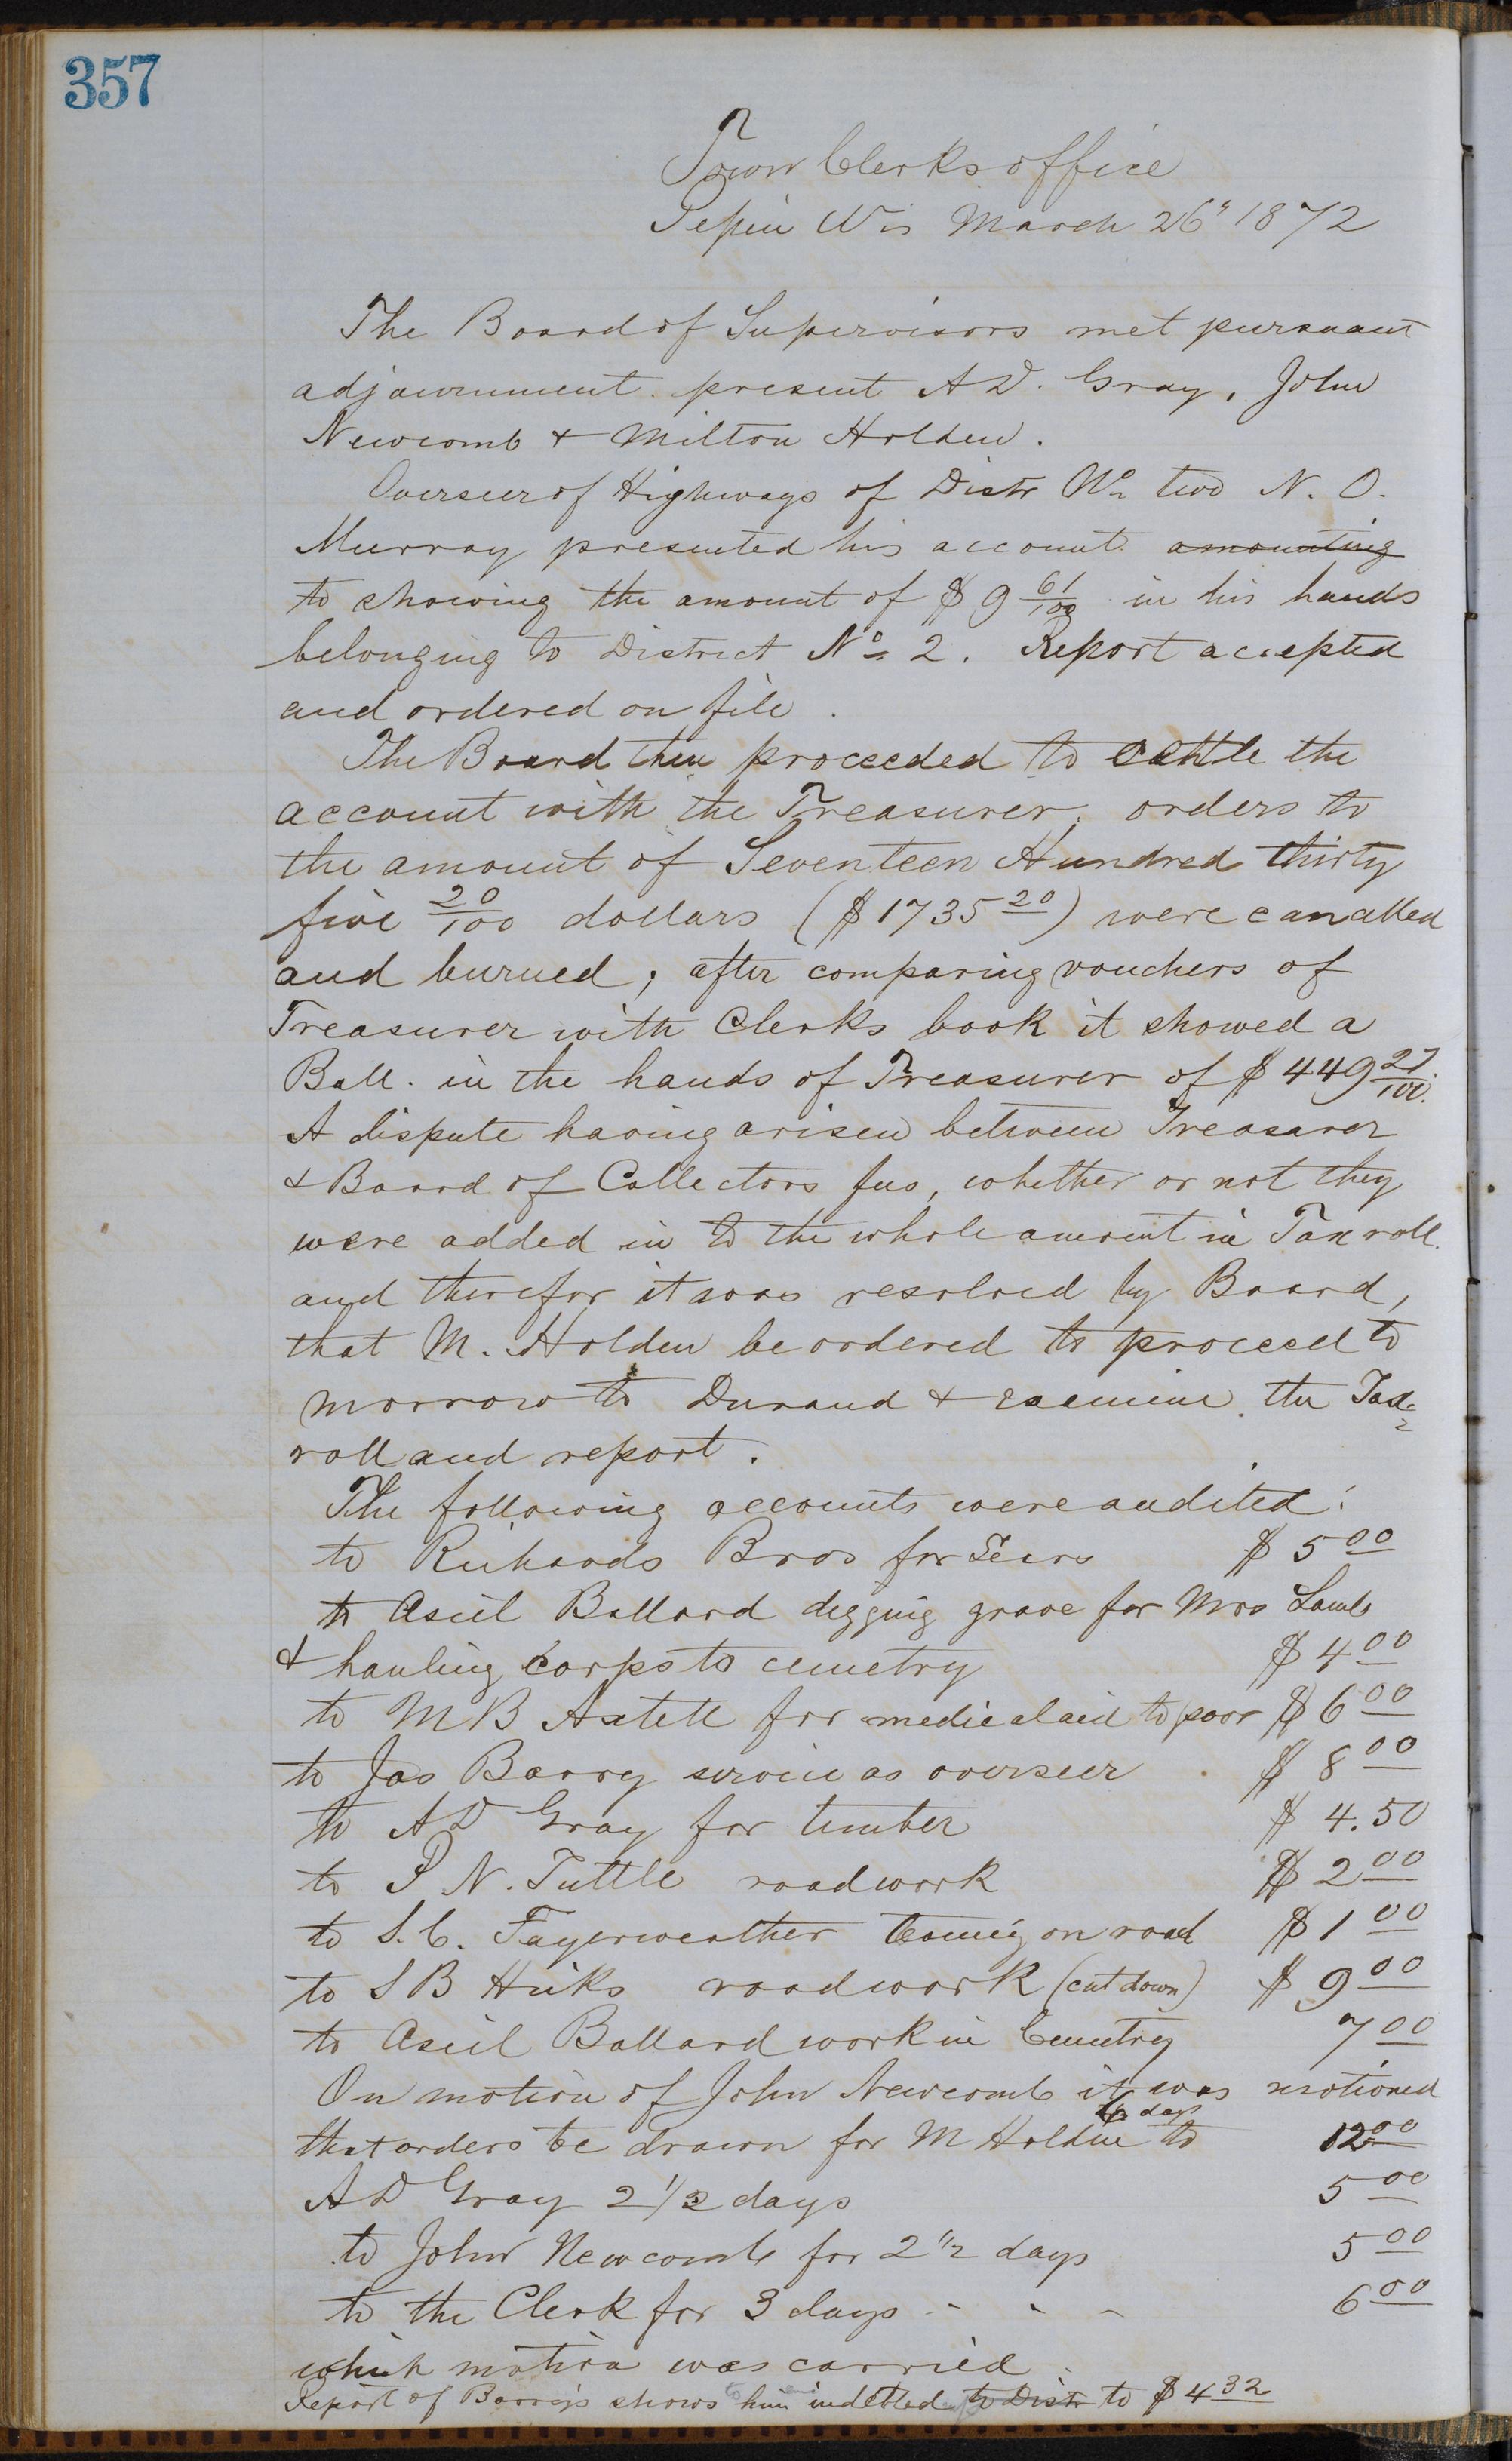 357
Town Clerks office
Pepin Wis March 26" 1872
The Board of Supervisors met pursuant
adjournment. present A D. Gray, John
Newcomb & Milton Holden.
Overseer of Highways of Distr No two N. O.
Murray presented his account. amounting
to showing the amount of $ 9 61/100 in his hands
belonging to District No 2. Report accepted
and ordered on file.
The Board then proceeded to settle the
account with the Treasurer, orders to
the amount of Seventeen Hundred thirty
five 20/100 dollars ($ 1735 20) were canalled
and burned; after comparing vouchers of
Treasurer with Clerks book it showed a
Ball. in the hands of Treasurer of $ 449 27/100.
A dispute having arisen between Treasurer
& Board of Collectors fees, whether or not they
were added in to the whole amount in Tax roll.
and therefor it was resolved by Board,
that M. Holden be ordered to proceed to
morrow to Durand & examine the Tax=
roll and report.
The following accounts were audited:
to Richards Bros for $ 5 00
to Asiel Ballard digging grave for Mrs Lamb
& hauling corps to cemetry $ 4 00
to M B Axtell for medical aid to poor $ 6 00
to Jas Barry service as overseer $ 8 00
to A D Gray for timber $ 4.50
to P N. Tuttle roadwork $ 2 00
to S. C. Fayerweather on road $ 1 00
to S B Hicks roadwork (cut down) $ 9 00
to Asiel Ballard work in Cemetry 7 00
On motion of John Newcomb it was motioned
that orders be drawn for M Holden 6 days to 12 00
A D Gray 2 1/2 days 5 00
to John Newcomb for 2 1/2 days 5 00
to the Clerk for 3 days - - - 6 00
which motion was carried.
Report of Barrys shows him indebted to Distr to $ 4 32